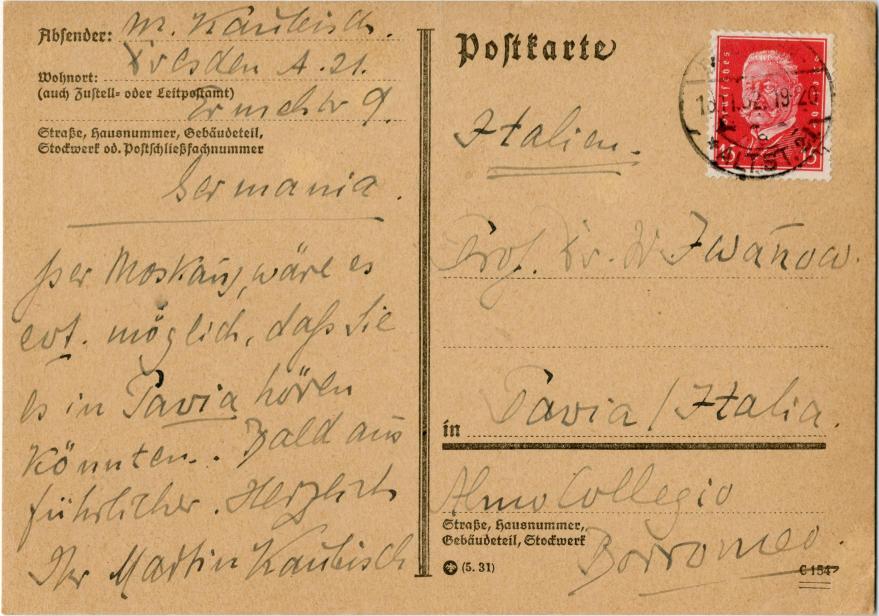 Absender: M. Kaubisch.
Dresden A. 21.
Wohnort:
(auch Zustell- oder Leitpostamt)
9.
Straße, Hausnummer, Gebäudeteil,
Stockwerk od. Postschließfachnummer
Germania.
per Moskau, wäre es
evt. möglich, daß Sie
es in Pavia hören
könnten. Bald aus
führlicher. Herzlich
Ihr Martin Kaubisch
Postkarte
Deutsches
19-20
ALTST. 21
15 15
Italien.
Prof. Dr. W. Iwánow.
in Pavia / Italia.
Almo Collegio
Straße, Hausnummer,
Gebäudeteil, Stockwerk
Borromeo.
(5. 31)
C 154